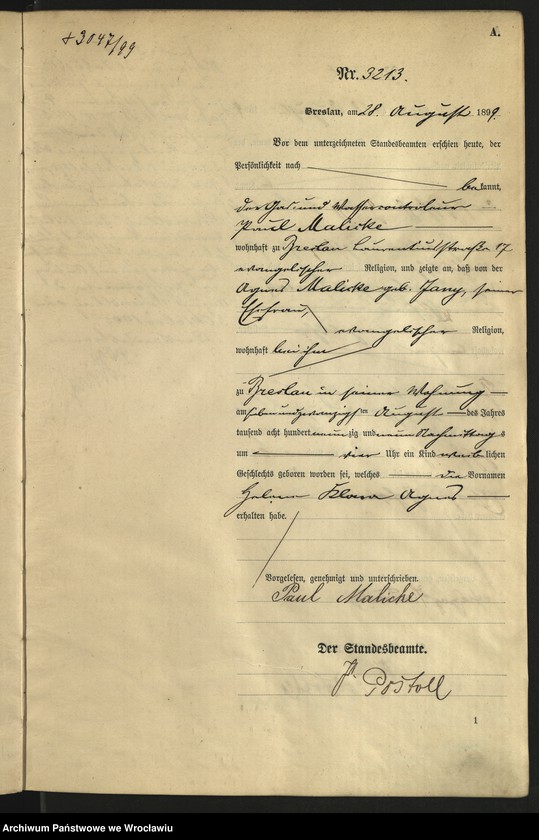 +3047/99
A.
Nr. 3213.
Breslau, am 28. August 1899.
Vor dem unterzeichneten Standesbeamten erschien heute, der
Persönlichkeit nach
bekannt,
der Gas und Wassercontroleur
Paul Malicke
wohnhaft zu Breslau Laurentiusstraße 17
evangelischer Religion, und zeigte an, daß von der
Agnes Malicke geb. Jany, seiner
Ehefrau,
evangelischer Religion,
wohnhaft bei ihm
zu Breslau in seiner Wohnung
am siebenundzwanzigsten August des Jahres
tausend acht hundert neunzig und neun Nachmittags
um vier Uhr ein Kind weiblichen
Geschlechts geboren worden sei, welches die Vornamen
Helene Klara Agnes
erhalten habe.
Vorgelesen, genehmigt und unterschrieben.
Paul Malicke
Der Standesbeamte.
Postoll
1
Archiwum Państwowe we Wrocławiu